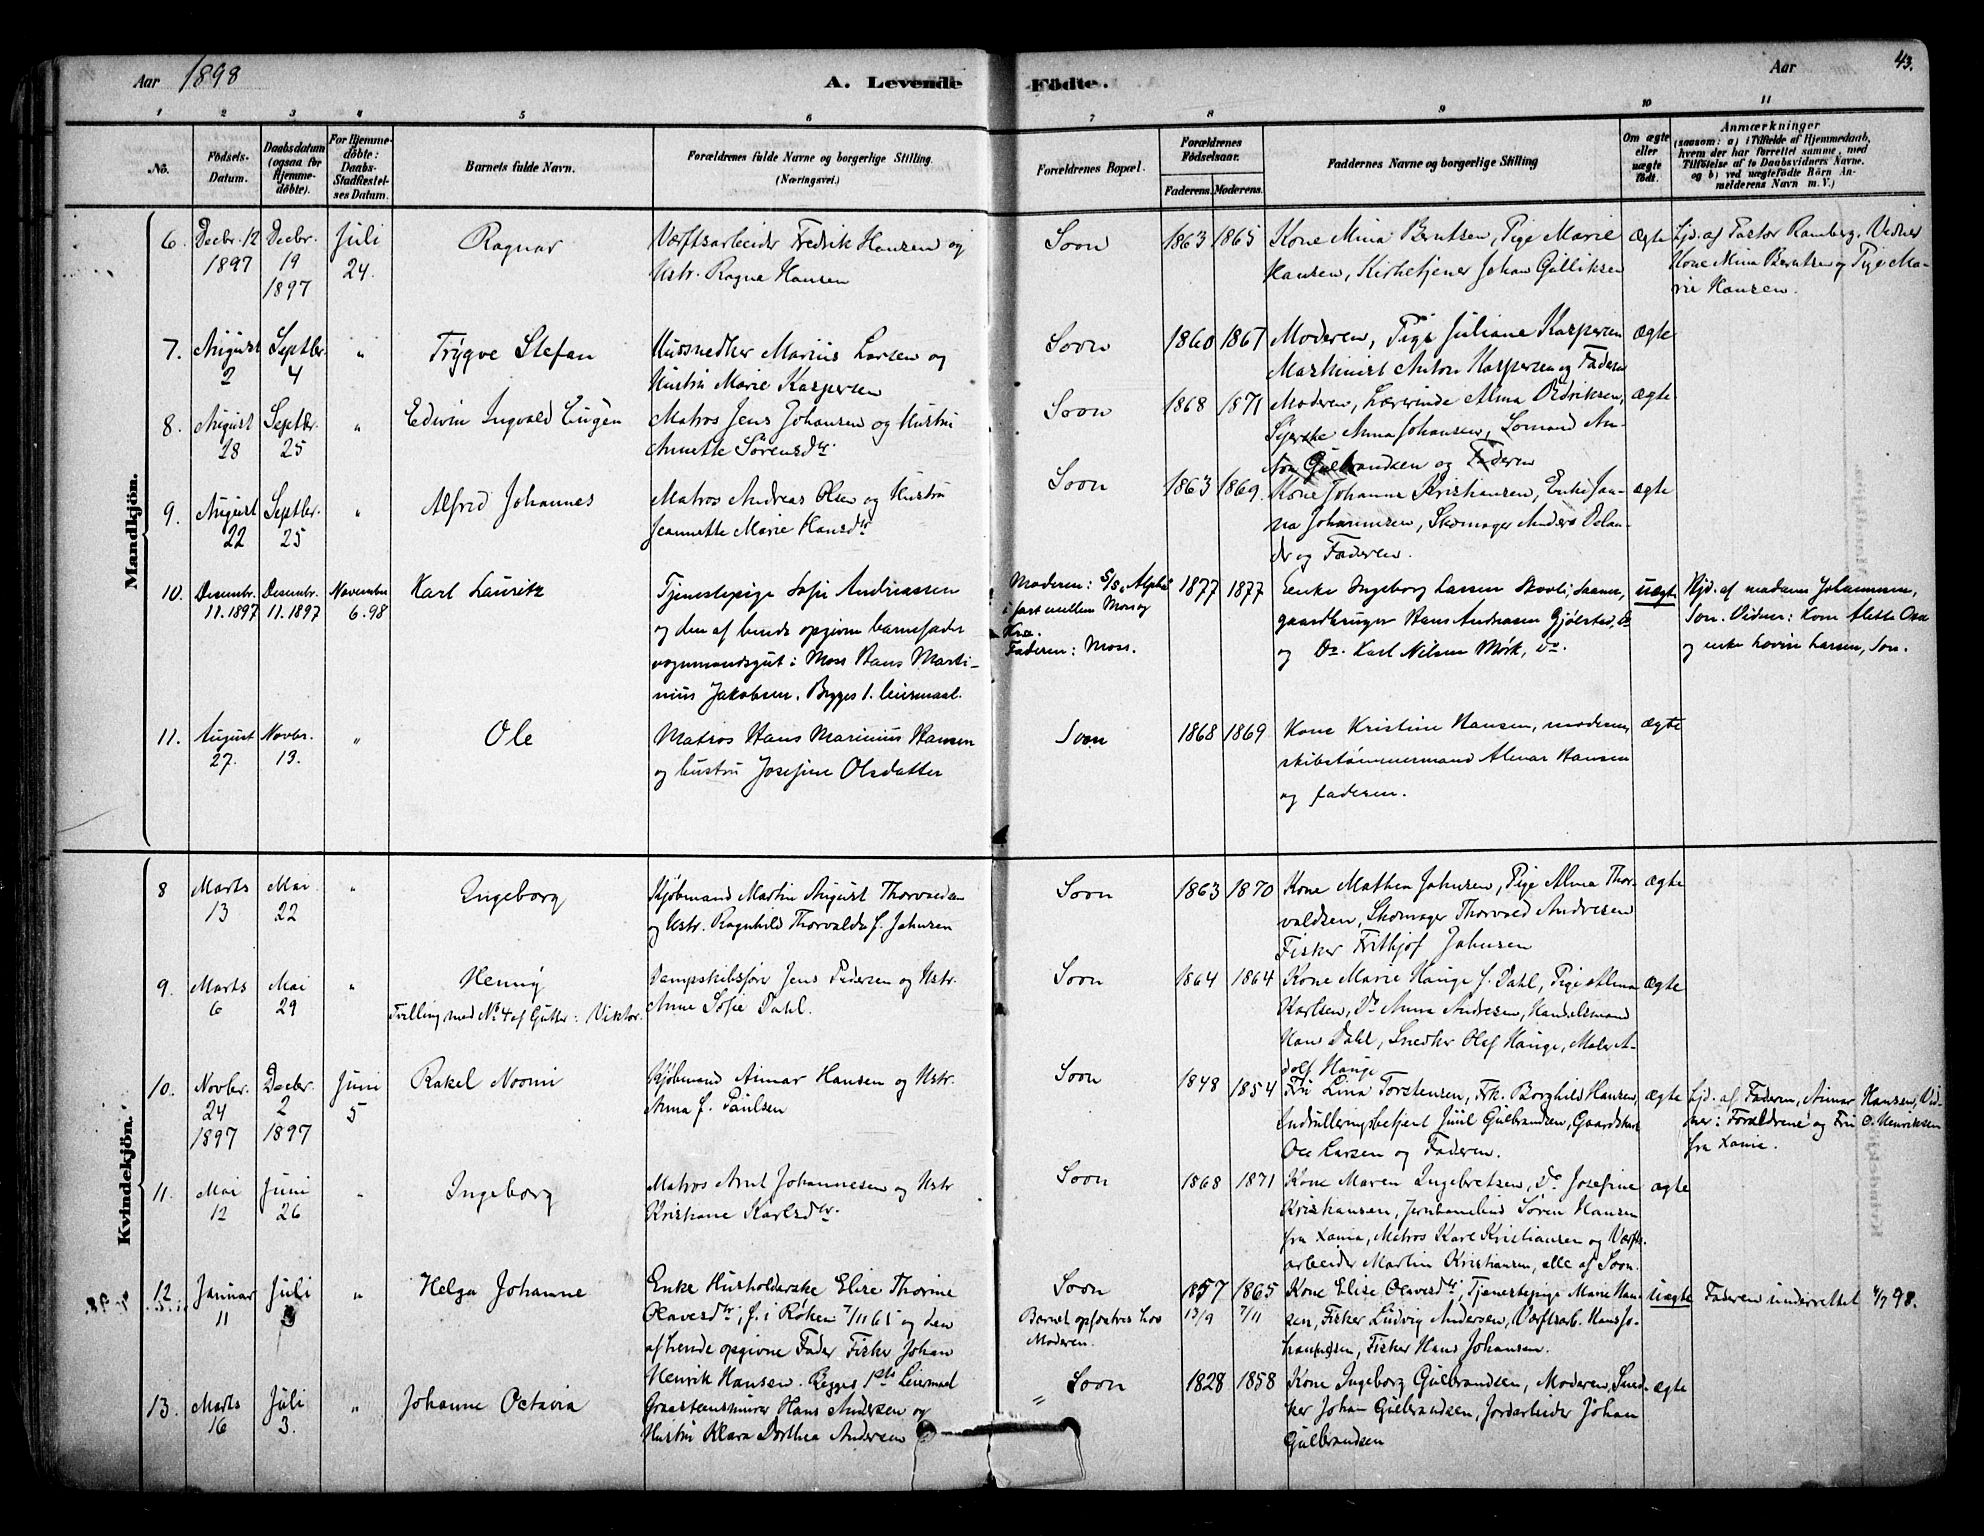 Aar 1898
A. Levende
Födte.
Aar
43.
1 2 3 4 5 6 7 8 9 10 11
No.
Födsels-
Datum.
Daabsdatum
(ogsaa for
Hjemme-
döbte).
For Hjemme-
döbte:
Daabs-
Stadfæstel-
ses Datum.
Barnets fulde Navn.
Forældrenes fulde Navne og borgerlige Stilling.
(Næringsvei.)
Forældrenes Bopæl.
Forældrenes
Födselsaar.
Faderens. Moderens.
Faddernes Navne og borgerlige Stilling
Om ægte
eller
uægte
födt.
Anmærkninger
(saasom: a) i Tilfælde af Hjemmedaab,
hvem der har forrettet samme, med
Tilföielse af to Daabsvidners Navne.
og b) ved uægtefödte Börn An-
melderens Navn m. V.)
Mandkjön.
6. Decbr. 12 1897
Decbr. 19 1897
Juli 24.
Ragnar
Værftsarbeider Fredrik Hansen og
Hstr. Ragna Hansen
Soon
1863 1865
Kone Mina Berntsen, Pige Marie
Hansen, Kirketjener Johan Gulliksen
ægte
Hjd. af Pastor Ramberg. Vidner
Kone Mina Berntsen og Pige Ma-
rie Hansen.
7. August 2
Septbr. 4
"
Trygve Stefan
Hussnedker Marius Larsen og
Hustru Marie Kaspersen
Soon
1860 1867
Moderen, Pige Juliane Kaspersen
Maskinist Anton Kaspersen og Faderen
ægte
8. August 28
Septbr. 25
"
Edwin Ingvald Eugen
Matros Jens Johansen og Hustru
Annette Sørensdtr
Soon
1868 1871
Moderen, Lærerinde Alma Didriksen,
Syerske Anna Johansen, Sømand An-
ton Gulbrandsen og Faderen
ægte
9. August 22
Septbr. 25
"
Alfred Johannes
Matros Andreas Olsen og Hustru
Jeannette Marie Hansdtr
Soon
1863 1869.
Kone Johanna Kristiansen, Enke Jan-
na Johannesen, Skomager Anders Velan-
der og Faderen.
ægte
10. Desembr. 11.1897
Desembr. 11.1897
November 6.98
Karl Lauritz
Tjenestepige Sofie Andreassen
og den af hende opgivne barnefader
vognmandsgut i Moss Hans Marti-
nius Jakobsen. Begges 1. leiermaal.
Moderen: S/S. Alpha
i fart mellem Moss og
Kra.
Faderen: Moss.
1877 1877
Enke Ingeborg Larsen Skovli, Saaner,
gaardbruger Hans Andreasen Gjølstad, Do
og Do. Karl Nilsen Mørk, Do.
uægte
Hjd. af madam Johannesen,
Son. Vidner: Kone Alette Olsen
og enke Lovise Larsen, Son.
11. August 27.
Novbr. 13.
"
Ole
Matros Hans Marinius Hansen
og hustru Josefine Olsdatter
Soon
1868 1869
Kone Kristine Hansen, moderen,
skibstømmermand Almar Hansen
og faderen.
ægte
Kvindekjön.
8 Marts 13
Mai 22
"
Ingeborg
Kjøbmand Martin August Thorvaldsen
og Hstr. Ragnhild Thorvalds. f. Johnsen
Soon
1863 1870
Kone Mathea Johnsen, Pige Alma Thor-
valdsen, Skomager Thorvald Andresen
Fisker Frithjof Johnsen
ægte
9. Marts 6
Mai 29
"
Henny
Tvilling med No 4 af Gutter: Viktor.
Dampskibsfører Jens Pedersen og Hstr.
Anne Sofie Dahl.
Soon
1864 1864
Kone Marie Hauge f. Dahl, Pige Alma
Karlsen, Do Anna Andresen, Handelsmand
Hans Dahl, Snedker Olaf Hauge, Maler A-
dolf Hauge
ægte
10. Novbr. 24 1897
Decbr. 2 1897
Juni 5
Rakel Noomi
Kjøbmand Aimar Hansen og Hstr.
Anna f. Paulsen
Soon
1848 1854
Fru Lina Torstensen, Frk. Borghild Hansen,
Indrulleringsbetjent Juul Gulbrandsen, Gaardbr.
Ole Larsen og Faderen.
ægte
Hjd. af Faderen, Aimar Hansen, Vid-
ner: Forældrene og Fru C. Henriksen
fra Xania.
11. Mai 12
Juni 26
"
Ingeborg
Matros Arnt Johannesen og Hstr
Kristiane Karlsdtr.
Soon
1868 1871
Kone Maren Ingebretsen, Do Josefine
Kristiansen, Jernbanebud Søren Hansen
fra Xania, Matros Karl Kristiansen og Værfts-
arbeider Martin Kristiansen, alle af Soon.
ægte
12. Januar 11
Juli 3
"
Helga Johanne
Enke Husholderske Elise Thorine
Olavesdtr, f. i Røken 7/11 65 og den
af hende opgivne Fader Fisker Johan
Henrik Hansen. Begges 1ste Leiermaal
Soon
Barnet opfostres hos
Moderen.
1857 13/9
1865 7/11
Kone Elise Olavesdtr, Tjenestepige Marie Han-
sen, Fisker Ludvig Andersen, Værftsarb. Hans Jo-
hannesen, Fisker Hans Johansen.
uægte
Faderen underrettet 4/7 98.
13. Marts 16
Juli 3.
"
Johanne Octavia
Graastensmurer Hans Andersen og
Hustru Klara Dorthea Andersen
" Soon
1828 1858
Kone Ingeborg Gulbrandsen, Moderen, Sned-
ker Johan Gulbrandsen, Jordarbeider Johan
Gulbrandsen
ægte